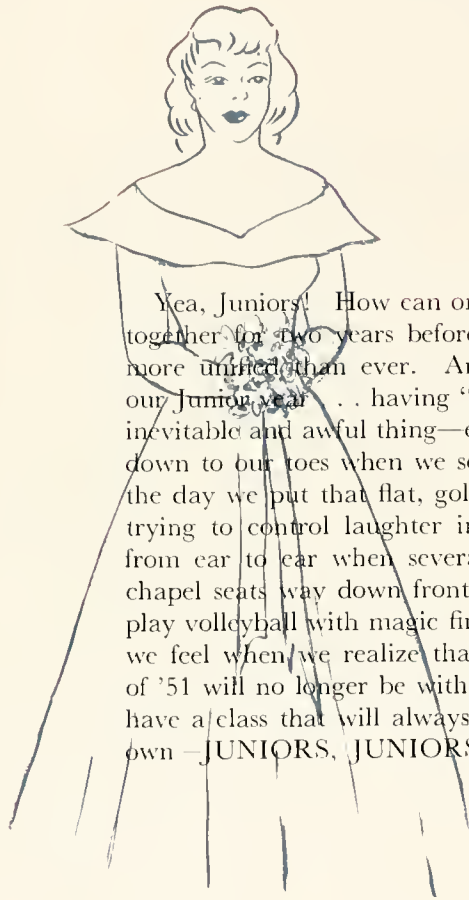 Yea, Juniors! How can or
together for two years before
more unified than ever. Ar
our Junior year . . having "
inevitable and awful thing—e
down to our toes when we se
the day we put that flat, gol
trying to control laughter in
from ear to ear when severa
chapel seats way down front
play volleyball with magic fin
we feel when we realize tha
of '51 will no longer be with
have a class that will always
own —JUNIORS, JUNIORS